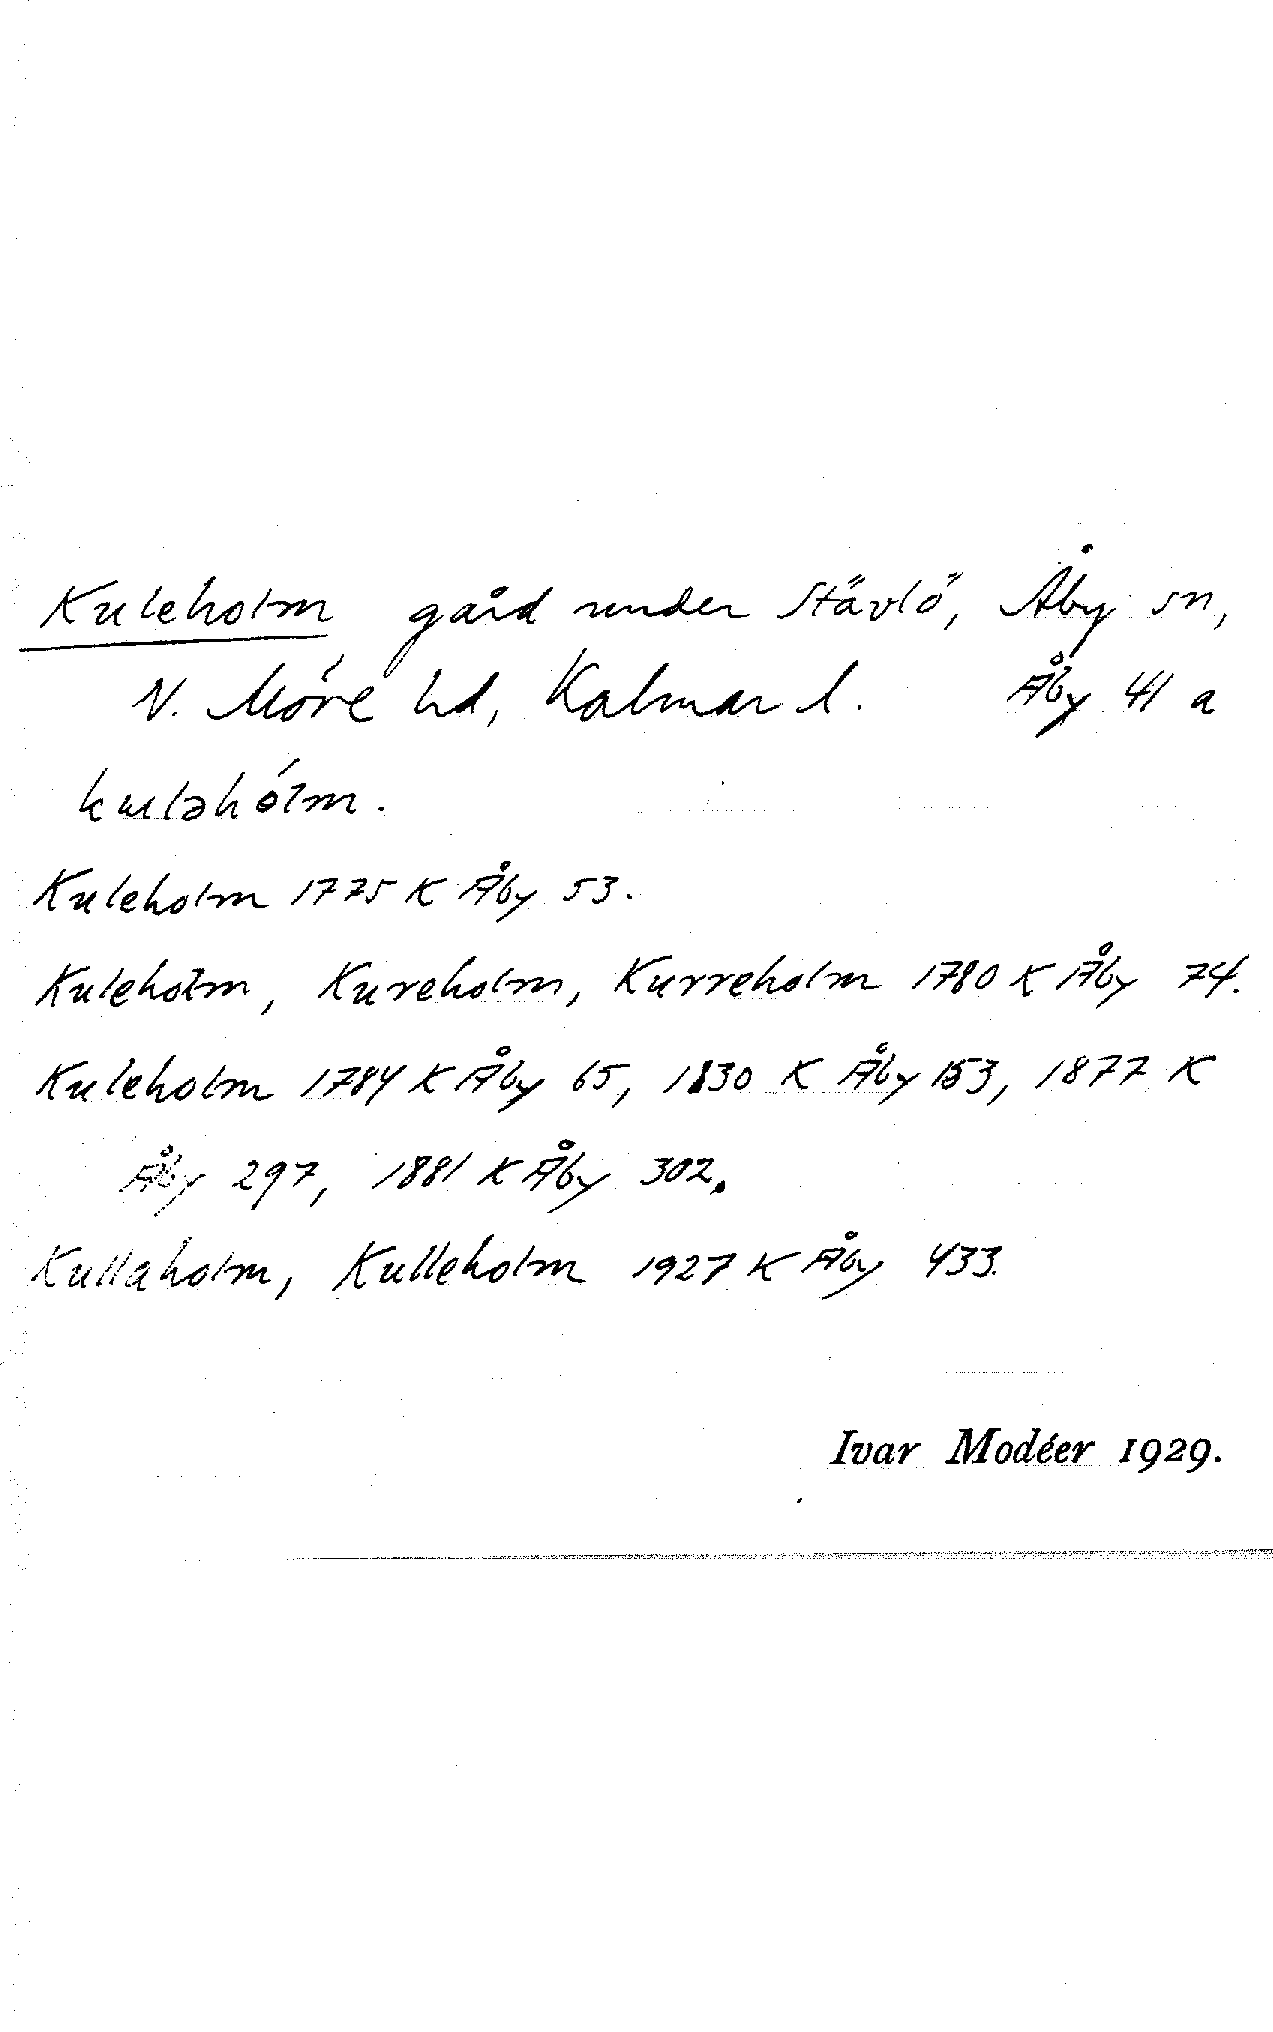 Kuleholm, gård under Stävlö, Åby sn,
N. Möre hd, Kalmar l. Åby 41 a
kuləhólm.
Kuleholm 1775 K Åby 53.
Kuleholm, Kureholm, Kurreholm 1780 K Åby 74.
Kuleholm 1784 K Åby 65, 1830 K Åby 153, 1877 K
Åby 297, 1881 K Åby 302.
Kullaholm, Kulleholm 1927 K Åby 433.
Ivar Modéer 1929.